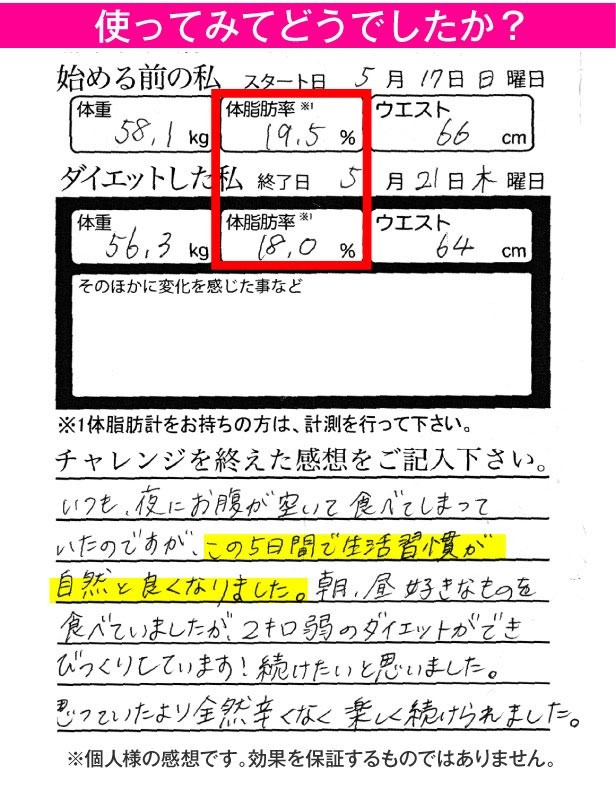 使ってみてどうでしたか？
始める前の私 スタート日 5月17日日曜日
体重 58.1kg 体脂肪率※1 19.5% ウエスト 66cm
ダイエットした私 終了日 5月21日木曜日
体重 56.3kg 体脂肪率※1 18.0% ウエスト 64cm
そのほかに変化を感じた事など
※1体脂肪計をお持ちの方は、計測を行って下さい。
チャレンジを終えた感想をご記入下さい。
いつも、夜にお腹が空いて食べてしまって
いたのですが、この5日間で生活習慣が
自然と良くなりました。朝、昼好きなものを
食べていましたが、2キロ弱のダイエットができ
びっくりしています！続けたいと思いました。
思っていたより全然辛くなく楽しく続けられました。
※個人様の感想です。効果を保証するものではありません。